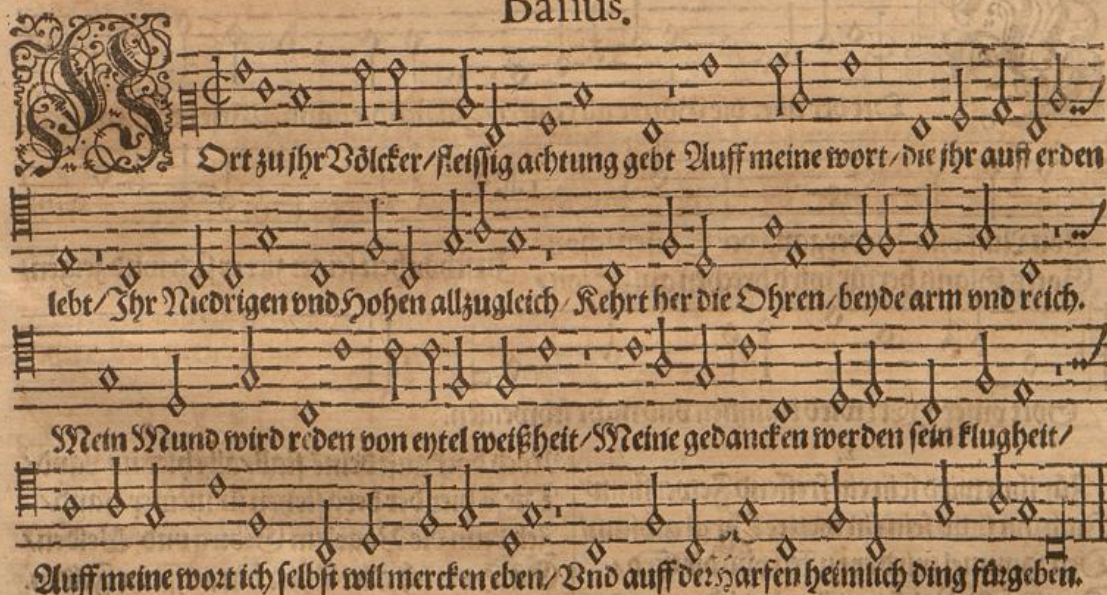 Bassus.
HOrt zu jhr Völcker/fleissig achtung gebt Auff meine wort/die jhr auff erden
lebt/Jhr Niedrigen vnd Hohen allzugleich/Kehrt her die Ohren/beyde arm vnd reich.
Mein Mund wird reden von eytel weißheit/Meine gedancken werden sein klugheit/
Auff meine wort ich selbst wil mercken eben/Vnd auff der Harfen heimlich ding fürgeben.